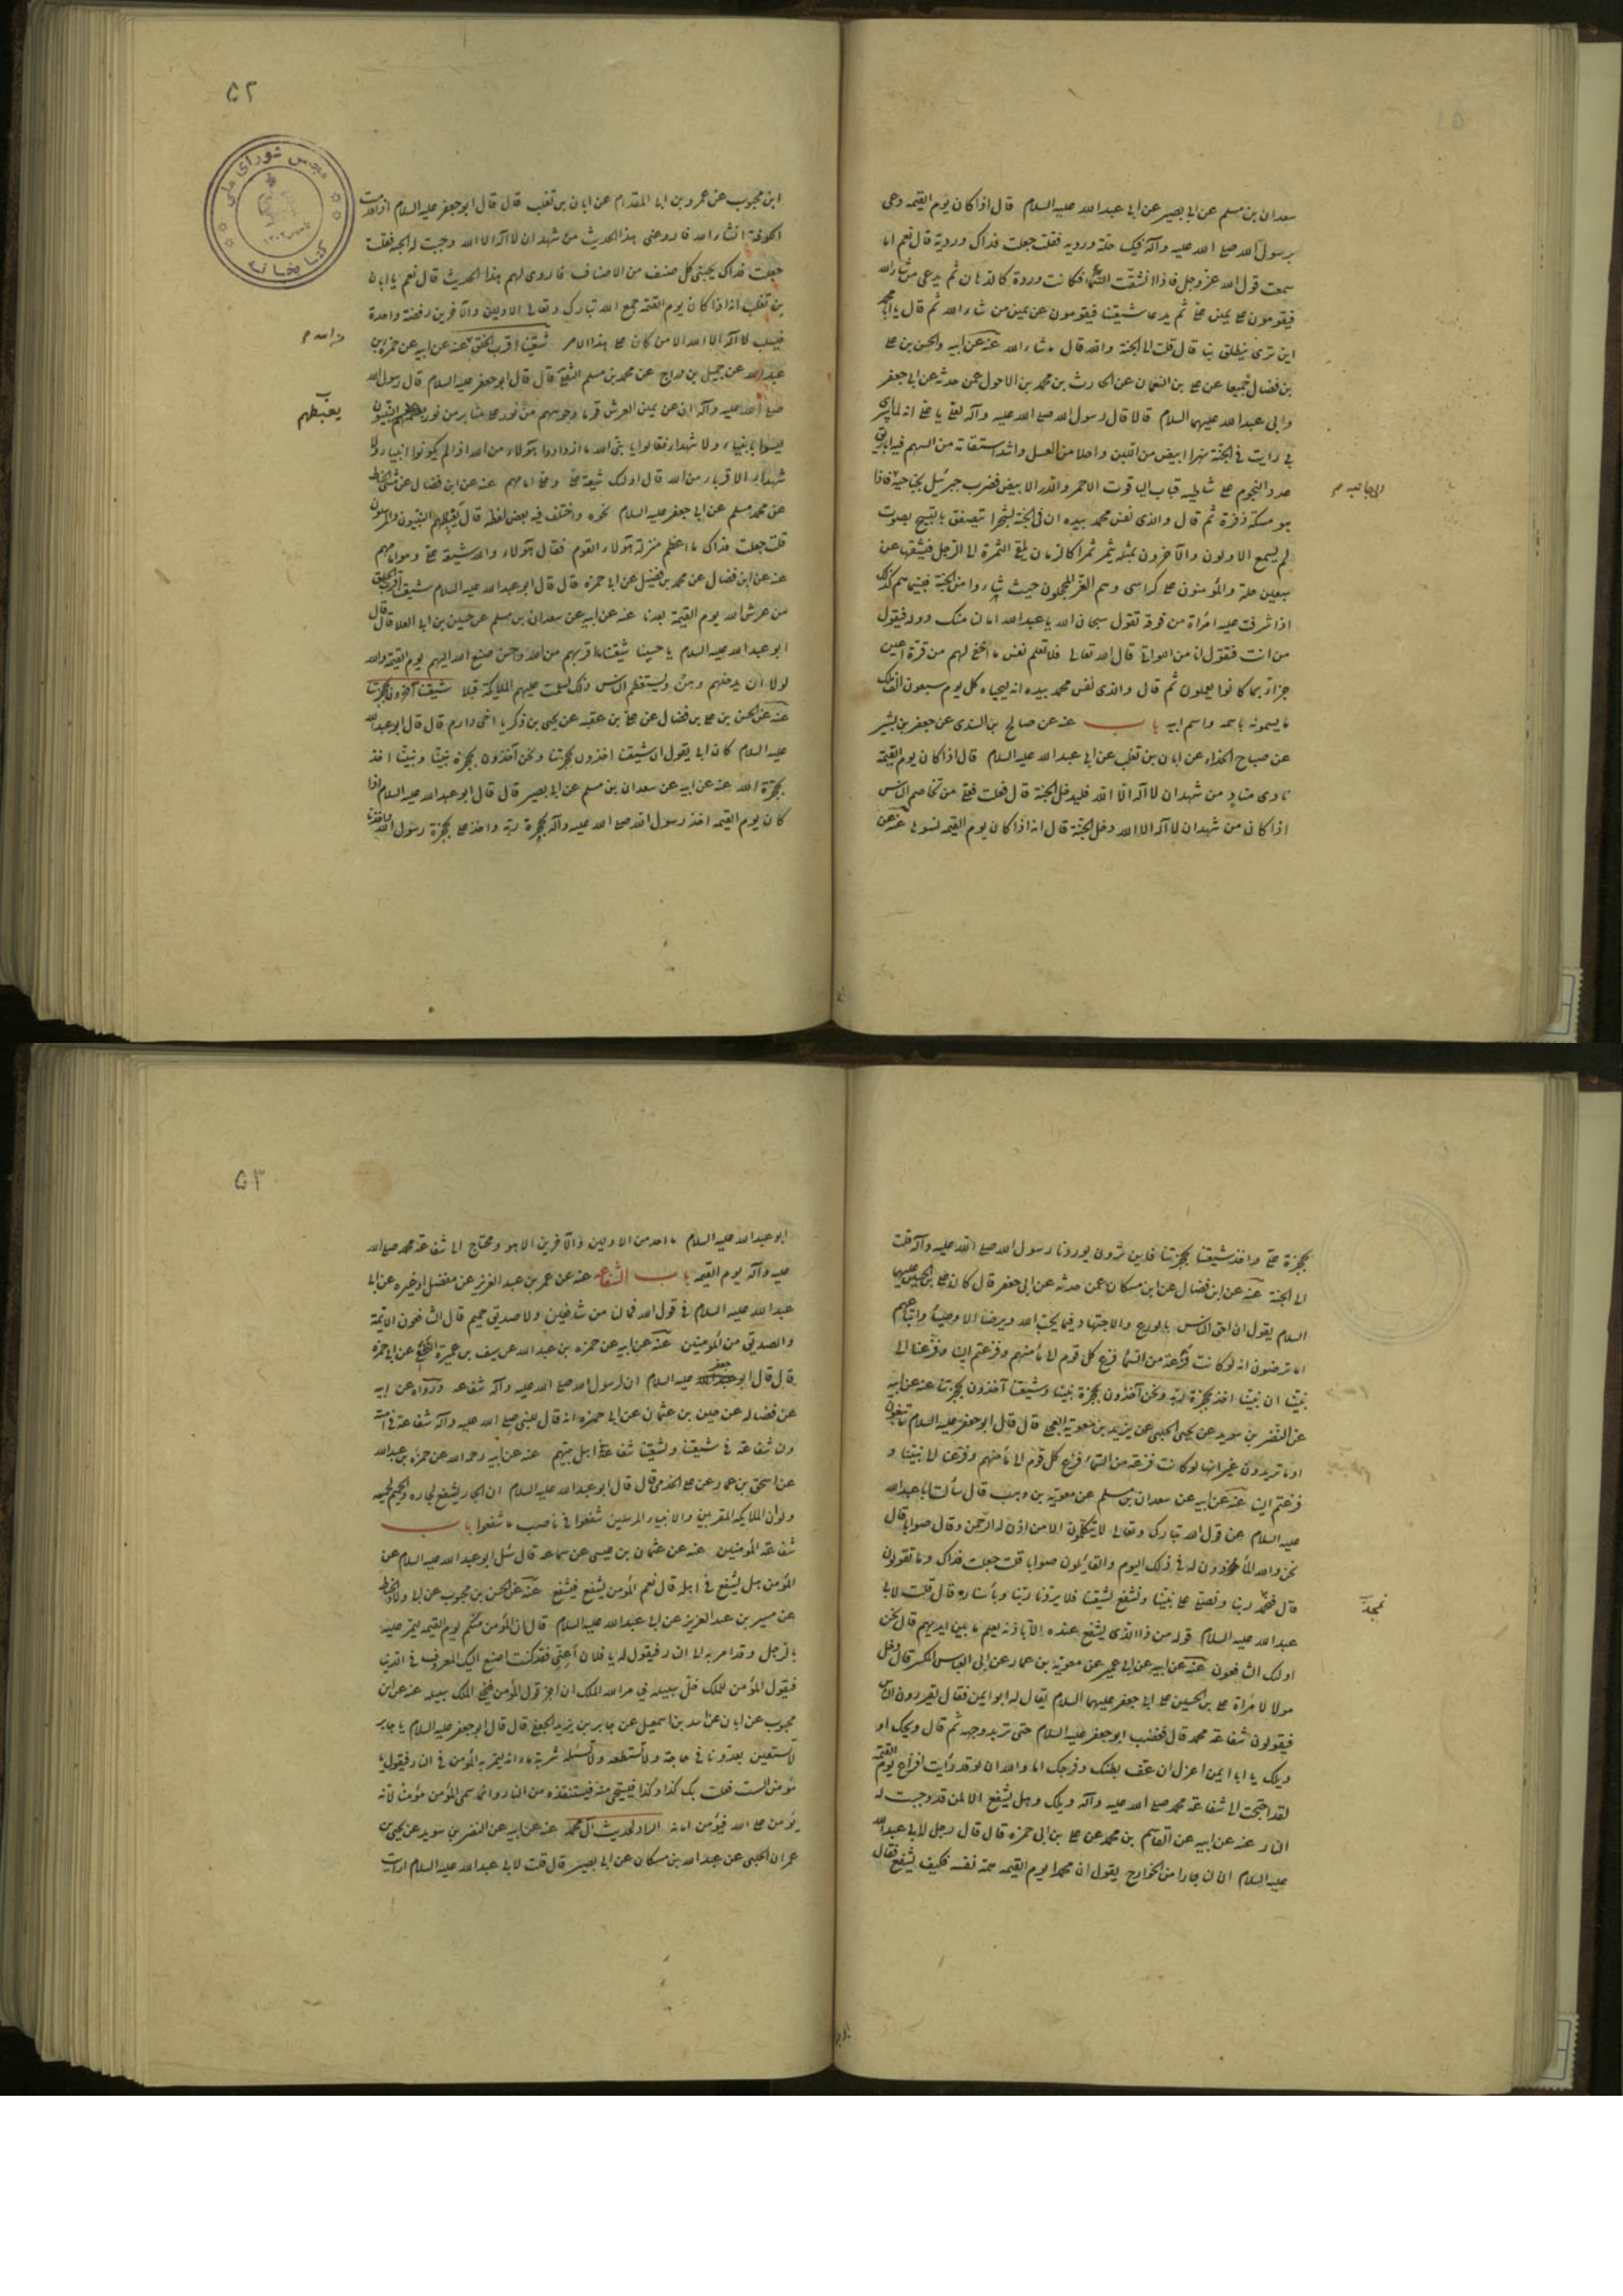 سعدان بن مسلم عن ابی بصیر عن ابی عبد الله علیه السلام قال اذا کان یوم القیمه دعی
برسول الله صلی الله علیه وآله فیکسی حلة وردیه فقلت جعلت فداک وردیة قال نعم اما
سمعت قول الله عز وجل فاذا انشقت السماء فکانت وردة کالدهان ثم یدعی من شاء الله
فیقومون علی یمین علی ثم یدعا شیعتنا فیقومون عن یمین من شاء الله ثم قال یا ابا محمد
این تری ینطلق بنا قال قلت الی الجنة والله قال ما شاء الله عنه عن ابیه والحسن بن علی
بن فضال جمیعا عن علی بن النعمان عن الحارث بن محمد بن الاحول عمن حدثه عن ابی جعفر
وابی عبد الله علیهما السلام قالا قال رسول الله صلی الله علیه وآله لعلی یا علی انه لما اسری
بی رایت فی الجنة نهرا ابیض من اللبن واحلا من العسل واشد استقامة من السهم فیه اباریق
عدد النجوم علی شاطیه قباب الیاقوت الاحمر والدر الابیض فضرب جبرئیل بجناحیه فاذا
الی جانبیه
هو مسکة ذفرة ثم قال والذی نفس محمد بیده ان فی الجنة لشجرا تتصفق بالتسبیح بصوت
لم یسمع الاولون والآخرون بمثله یثمر ثمرا کالرمان یلقی الثمرة الی الرجل فیشقها عن
سبعین حلة والمؤمنون علی کراسی وهم الغر المحجلون حیث شاءوا من الجنة فبیناهم کذلک
اذا شرفت علیه امراة من فوقه تقول سبحان الله یا عبد الله اما لنا منک دولة فیقول
من انت فتقول انا من اللواتی قال الله تعالی فلا تعلم نفس ما اخفی لهم من قرة اعین
جزاء بما کانوا یعملون ثم قال والذی نفس محمد بیده انه لیجیئه کل یوم سبعون الف ملک
ما یسمونه باسمه واسم ابیه باب عنه عن صالح بن السندی عن جعفر بن بشیر
عن صباح الحذاء عن ابان بن تغلب عن ابی عبد الله علیه السلام قال اذا کان یوم القیمة
نادی مناد من شهد ان لا اله الا الله فلیدخل الجنة قال قلت فعلی من تخاصم الناس
اذا کان من شهد ان لا اله الا الله دخل الجنة قال انه اذا کان یوم القیمه نسوها عنه عن
۵۲
مجلس شورای ملی
کتابخانه
ابن محبوب عن عمرو بن ابی المقدام عن ابان بن تغلب قال قال ابو جعفر علیه السلام اذا قدمت
الکوفة انشاء الله فاروعنی هذا الحدیث من شهد ان لا اله الا الله وجبت له الجنه فقلت
جعلت فداک یجیئنی کل صنف من الاصناف فاروی لهم هذا الحدیث قال نعم یا ابان
بن تغلب انه اذا کان یوم القیمة جمع الله تبارک وتعالی الاولین والآخرین فی روضة واحدة
فیسلب لا اله الا الله الا من کان علی هذا الامر شیعتنا اقرب الخلق عنه عن ابیه عن حمزه بن
من الله
عبد الله عن جمیل بن دراج عن محمد بن مسلم الثقفی قال قال ابو جعفر علیه السلام قال رسول الله
صلی الله علیه وآله ان عن یمین العرش قوما وجوههم من نور علی منابر من نور یغبطهم النبیون
یغبطهم
لیسوا بانبیاء ولا شهداء فقالوا یا نبی الله ما ازدادوا هؤلاء من الله اذا لم یکونوا انبیاء ولا
شهداء الا قربا من الله قال اولئک شیعة علی وعلی امامهم عنه عن ابن فضال عن مثنی الحناط
عن محمد مسلم عن ابی جعفر علیه السلام نحوه واختلف فیه بعض لفظه قال یغبطهم النبیون والمرسلون
قلت جعلت فداک ما اعظم منزلة هؤلاء القوم فقال هؤلاء والله شیعة علی وهو امامهم
عنه عن ابن فضال عن محمد بن فضیل عن ابی حمزه قال قال ابو عبد الله علیه السلام شیعتنا اقرب الخلق
من عرش الله یوم القیمة بعدنا عنه عن ابیه عن سعدان بن مسلم عن حسین بن ابی العلا قال قال
ابو عبد الله علیه السلام یا حسین شیعتنا ما اقربهم من الله واحسن صنع الله الیهم یوم القیمة والله
لولا ان یدخلهم وهن ویستعظم الناس ذلک لسلمت علیهم الملایکة قبلا شیعتنا آخذون بحجزتنا
عنه عن الحسن بن علی بن فضال عن علی بن عقبه عن یحیی بن زکریا اخی دارم قال قال ابو عبد الله
علیه السلام کان ابی یقول ان شیعتنا آخذون بحجزتنا ونحن آخذون بحجزة نبینا ونبینا اخذ
بحجزة الله عنه عن ابیه عن سعدان بن مسلم عن ابی بصیر قال قال ابو عبد الله علیه السلام اذا
کان یوم القیمه اخذ رسول الله صلی الله علیه وآله بحجزة ربه واخذ علی بحجزة رسول الله واخذنا
بحجزة علی واخذ شیعتنا بحجزتنا فاین ترون یوردنا رسول الله صلی الله علیه وآله قلت
الی الجنة عنه عن ابن فضال عن ابن مسکان عمن حدثه عن ابی جعفر قال کان علی بن الحسین علیهما
السلام یقول ان احق الناس بالورع والاجتهاد فیما یحب الله ویرضا الاوصیاء واتباعهم
اما ترضون انه لو کانت فزعة من السماء فزع کل قوم الی مأمنهم وفزعتم الینا وفزعنا الی
نبینا ان نبینا اخذ بحجزة ربه ونحن آخذون بحجزة نبینا وشیعتنا آخذون بحجزتنا عنه عن ابیه
عن النضر بن سوید عن یحیی الحلبی عن برید بن معویة العجلی قال قال ابو جعفر علیه السلام ما تبغون
او ما تریدون غیر انها لو کانت فزعة من السماء فزع کل قوم الی مأمنهم وفزعنا الی نبینا و
فزعتم الینا عنه عن ابیه عن سعدان بن مسلم عن معویة بن وهب قال سألت ابا عبد الله
علیه السلام عن قول الله تبارک وتعالی لا یتکلمون الا من اذن له الرحمن وقال صوابا قال
نحن والله المأذون لهم فی ذلک الیوم والقائلون صوابا قلت جعلت فداک وما تقولون
قال نمجد ربنا ونصلی علی نبینا ونشفع لشیعتنا فلا یردنا ربنا وبأسناده قال قلت لابی
نمجد
عبد الله علیه السلام قوله من ذا الذی یشفع عنده الا باذنه یعلم ما بین ایدیهم قال نحن
اولئک الشافعون عنه عن ابیه عن ابی عمیر عن معویة بن عمار عن ابی العباس المکبر قال دخل
مولا لامراة علی بن الحسین علی ابی جعفر علیهما السلام یقال له ابو ایمن فقال یغرون الناس
فیقولون شفاعة محمد قال فغضب ابو جعفر علیه السلام حتی تربد وجهه ثم قال ویحک او
ویلک یا ابا ایمن اغرک ان عف بطنک وفرجک اما والله ان لو قد رأیت افزاع یوم القیمة
لقد احتجت الی شفاعة محمد صلی الله علیه وآله ویلک وهل یشفع الا لمن قد وجبت له
النار عنه عن ابیه عن القاسم بن محمد عن علی بن ابی حمزه قال قال رجل لابی عبد الله
علیه السلام ان لنا جارا من الخوارج یقول ان محمدا یوم القیمه همه نفسه فکیف یشفع فقال
۵۳
ابو عبد الله علیه السلام ما احد من الاولین والآخرین الا هو ومحتاج الی شفاعة محمد صلی الله
علیه وآله یوم القیمه باب الشفاعه عنه عن عمر بن عبد العزیز عن مفضل او غیره عن ابی
عبد الله علیه السلام فی قول الله فما لنا من شافعین ولا صدیق حمیم قال الشافعون الائمة
والصدیق من المؤمنین عنه عن ابیه عن حمزه بن عبد الله عن سیف بن عمیرة النخعی عن ابی حمزه
قال قال ابو جعفر علیه السلام ان لرسول الله صلی الله علیه وآله شفاعه ورواه عن ابیه
عن فضاله عن حسین بن عثمان عن ابی حمزه انه قال للنبی صلی الله علیه وآله شفاعة فی امته
ولنا شفاعة فی شیعتنا ولشیعتنا شفاعة فی اهل بیتهم عنه عن ابیه رحمه الله عن حمزه بن عبد الله
عن اسحق بن عمار عن علی الخدمی قال قال ابو عبد الله علیه السلام ان الجار یشفع لجاره والحمیم لحمیمه
ولو ان الملایکه المقربین والانبیاء المرسلین شفعوا فی ناصب ما شفعوا باب
شفاعة المؤمنین عنه عن عثمان بن عیسی عن سماعه قال سئل ابو عبد الله علیه السلام عن
المؤمن هل یشفع فی اهله قال نعم المؤمن یشفع فیشفع عنه عن الحسن بن محبوب عن ابی ولاد الحناط
عن میسر بن عبد العزیز عن ابی عبد الله علیه السلام قال ان المؤمن منکم یوم القیمه لیمر علیه
بالرجل وقد امر به الی النار فیقول له یا فلان اغثنی فقد کنت اصنع الیک المعروف فی الدنیا
فیقول المؤمن للملک خل سبیله فیأمر الله الملک ان اجز قول المؤمن فیخلی الملک سبیله عنه عن ابن
محبوب عن ابان عن اسد بن اسمعیل عن جابر بن یزید الجعفی قال قال ابو جعفر علیه السلام یا جابر
لا تستعین بعدونا فی حاجة ولا تستطعمه ولا تسئله شربة ماء انه لیمر به المؤمن فی النار فیقول یا
مؤمن الست فعلت بک کذا وکذا فیستحیی منه فیستنقذه من النار وانما سمی المؤمن مؤمنا لانه
یؤمن علی الله فیؤمن امانه الراد لحدیث آل محمد عنه عن ابیه عن النضر بن سوید عن یحیی بن
عمران الحلبی عن عبد الله بن مسکان عن ابی بصیر قال قلت لابی عبد الله علیه السلام ارایت